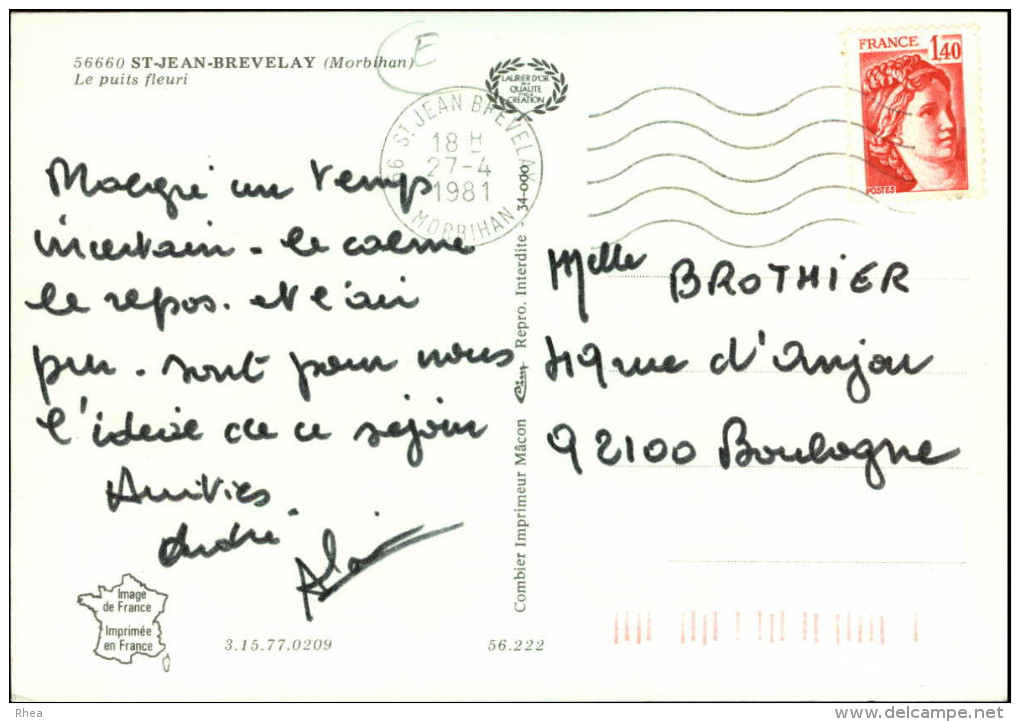 56660 ST-JEAN-BREVELAY (Morbihan)
Le puits fleuri
E
LAURIER D'OR
DE LA
QUALITE
CREATION
56 ST JEAN BREVELAY
18 H
27-4
1981
MORBIHAN
FRANCE
1,40
POSTES
Malgré un temps
incertain - le calme
le repos. et l'air
pur - sont pour nous
l'idéal de ce séjour
Amitiés
André.
Alain
Mlle BROTHIER
rue d'Anjou
92100 Boulogne
Combier Imprimeur Mâcon
Repro. Interdite - 34-000
Image
de France
Imprimée
en France
3.15.77.0209
56.222
Rhea
www.delcampe.net